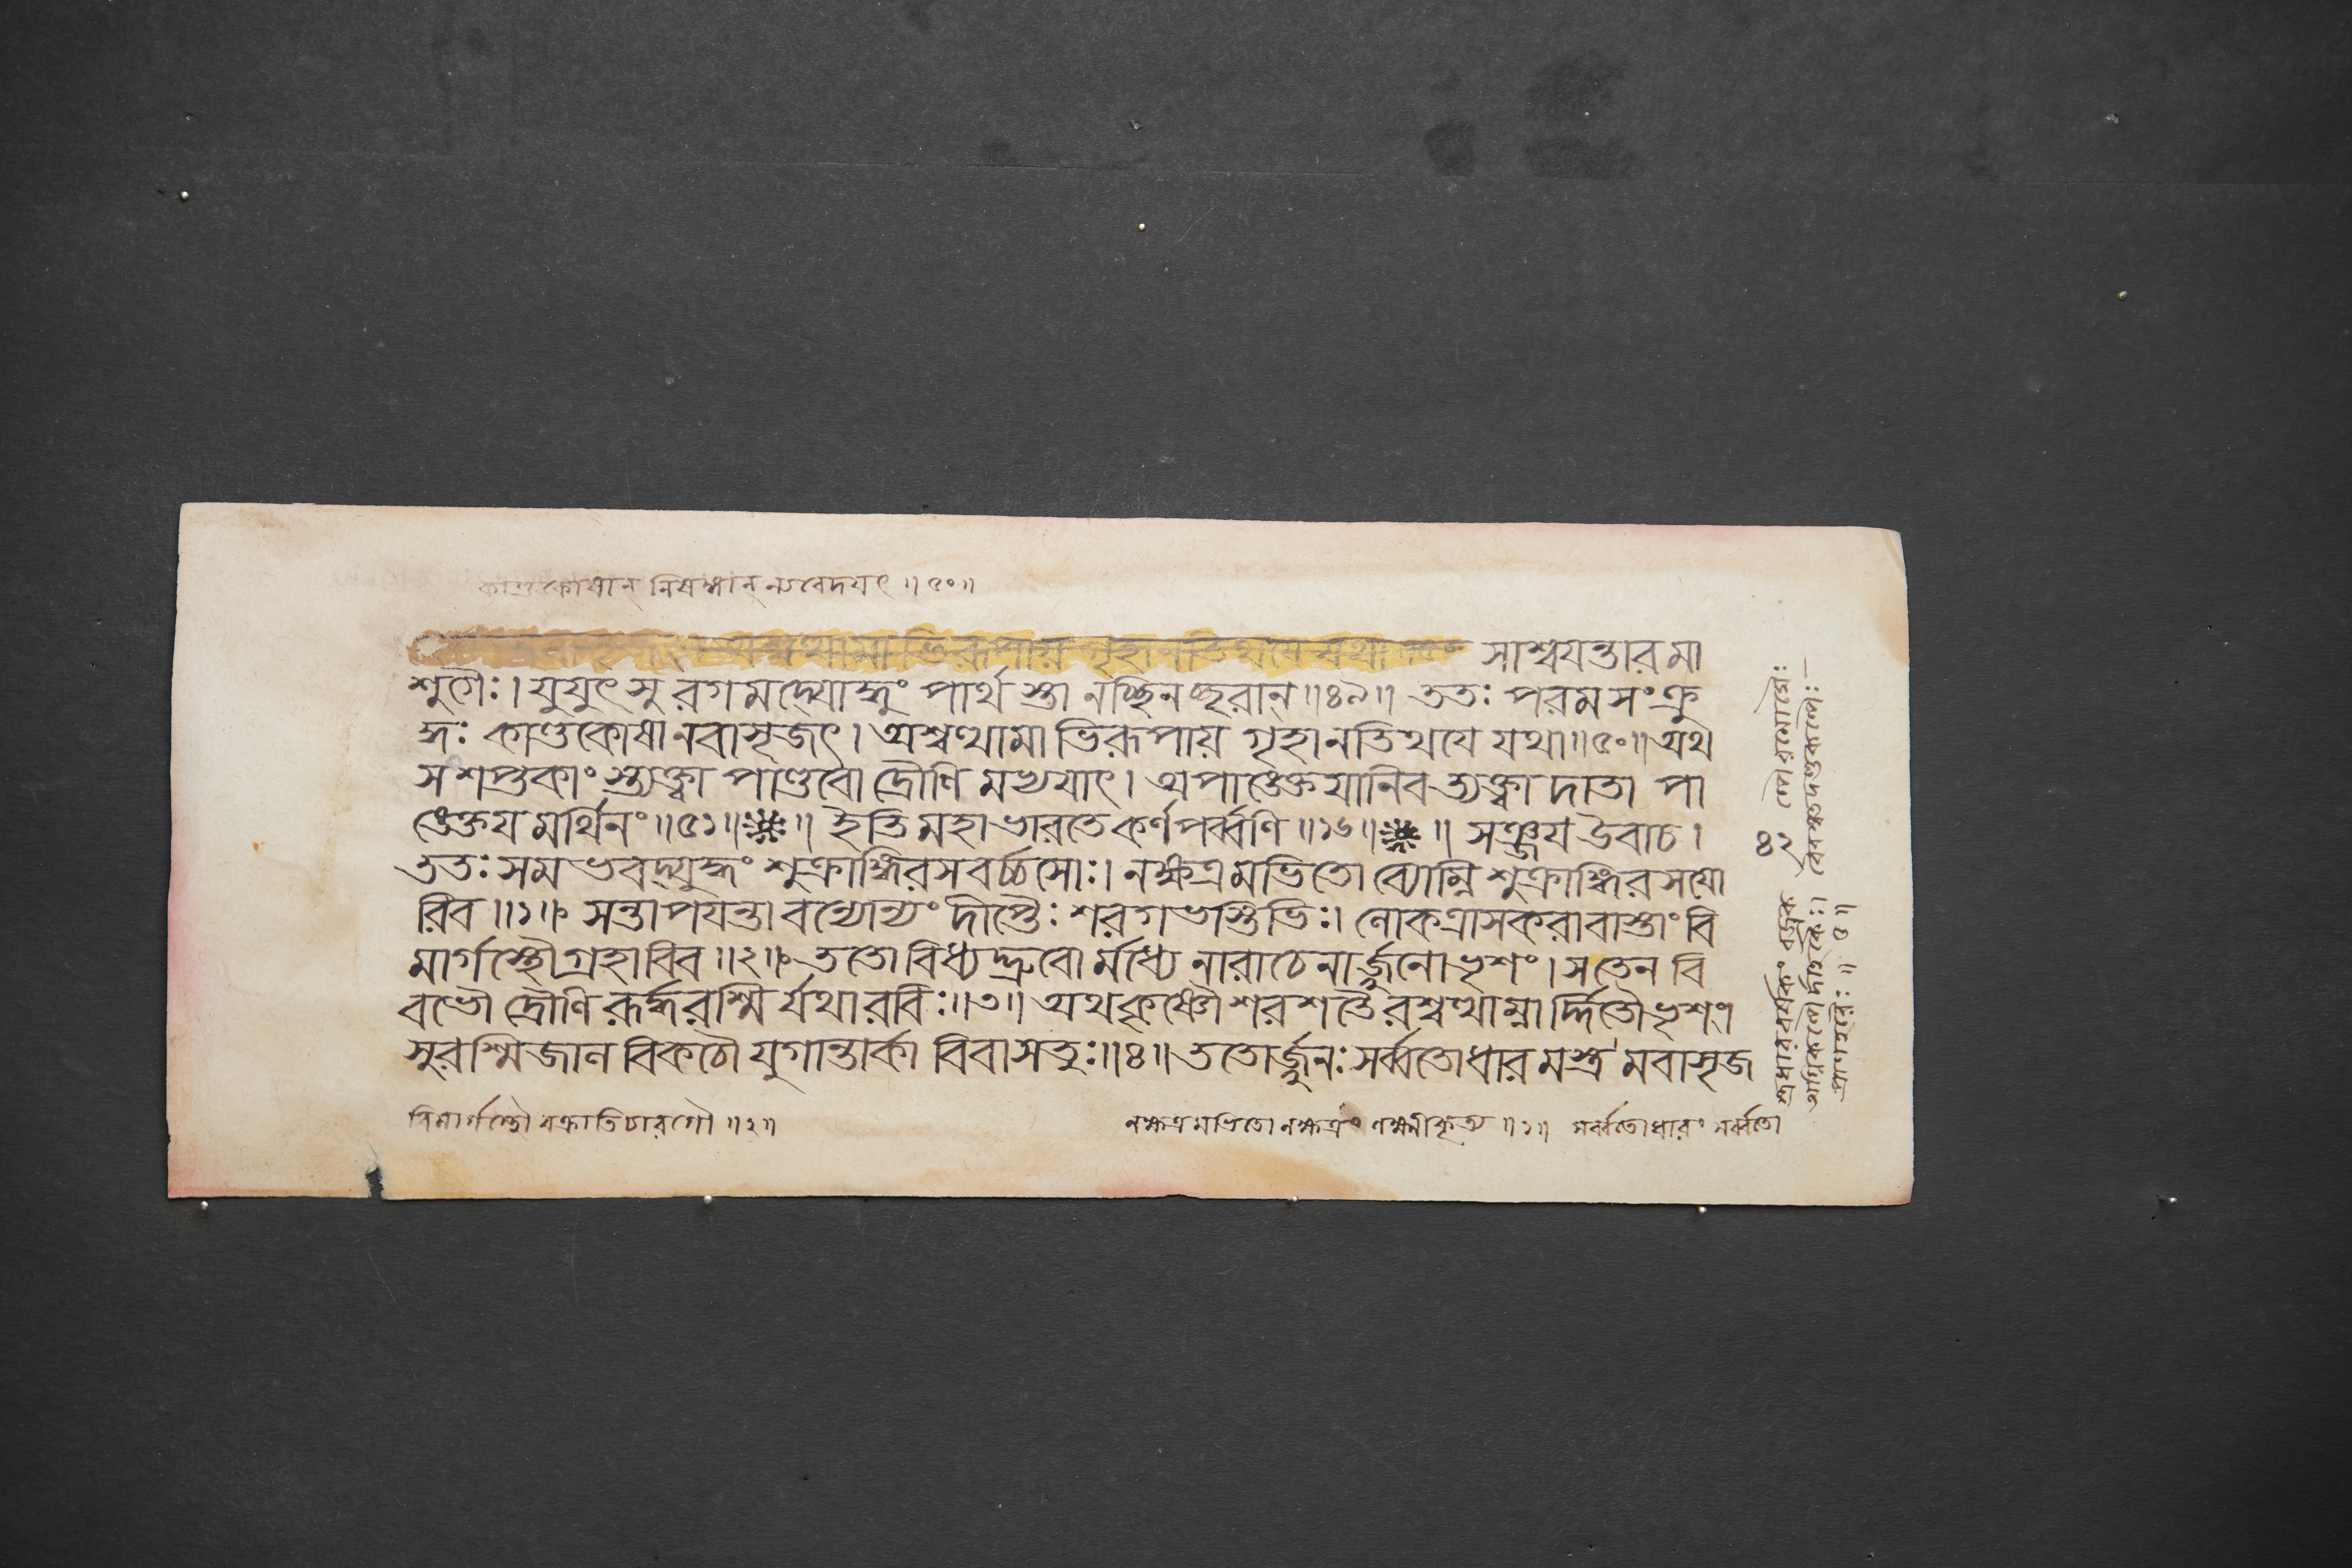 কাণ্ডকোষান্ নিষঙ্গান্ ন্যবেদয়ৎ ॥ ৫০ ॥
অশ্বত্থামাভিরূপায় গৃহানতিথয়ে যথা সাশ্বযন্তারমা
শুগৈঃ । যুযুৎসুরগমদ্যোদ্ধুং পার্থস্তানচ্ছিনচ্ছরান্ ॥ ৪৯ ॥ ততঃ পরমসংক্রু
দ্ধঃ কাণ্ডকোষানবাসৃজৎ । অশ্বত্থামাভিরূপায় গৃহানতিথযে যথা ॥ ৫০ ॥ অথ
সংশপ্তকাংস্ত্যক্ত্বা পাণ্ডবো দ্রৌণিমভ্যযাৎ । অপাঙ্ক্তেযানিব ত্যক্ত্বা দাতা পা
ঙ্ক্তেযমর্থিনং ॥ ৫১ ॥ ॥ ইতি মহাভারতে কর্ণপর্ব্বণি ॥ ১৬ ॥ ॥ সঞ্জয উবাচ ।
ততঃ সমভবদ্যুদ্ধং শুক্রাঙ্গিরসবর্চ্চসোঃ । নক্ষত্রমভিতো ব্যোম্নি শুক্রাঙ্গিরসযো
রিব ॥ ১ ॥ সন্তাপযন্তাবন্যোন্যং দীপ্তৈঃ শরগভস্তিভিঃ । লোকত্রাসকরাবাস্তাং বি
মার্গস্থৌ গ্রহাবিব ॥ ২ ॥ ততোবিধ্যদ্ভ্রুবোর্মধ্যে নারাচেনার্জ্জুনো ভৃশং । স তেন বি
বভৌ দ্রৌণিরূর্দ্ধরশ্মির্যথা রবিঃ ॥ ৩ ॥ অথ কৃষ্ণৌ শরশতৈরশ্বত্থাম্নার্দ্দিতৌ ভৃশং ।
সুরশ্মিজালবিকচৌ যুগান্তার্কাবিবাসতুঃ ॥ ৪ ॥ ততোর্জ্জুনঃ সর্ব্বতোধারমস্ত্রমবাসৃজ
বিমার্গস্থৌ বক্রাতিচারগৌ ॥ ২ ॥ নক্ষত্রমভিতো নক্ষত্রং লক্ষ্যীকৃত্য ॥ ১ ॥ সর্ব্বতোধারং সর্ব্বতো
৪২